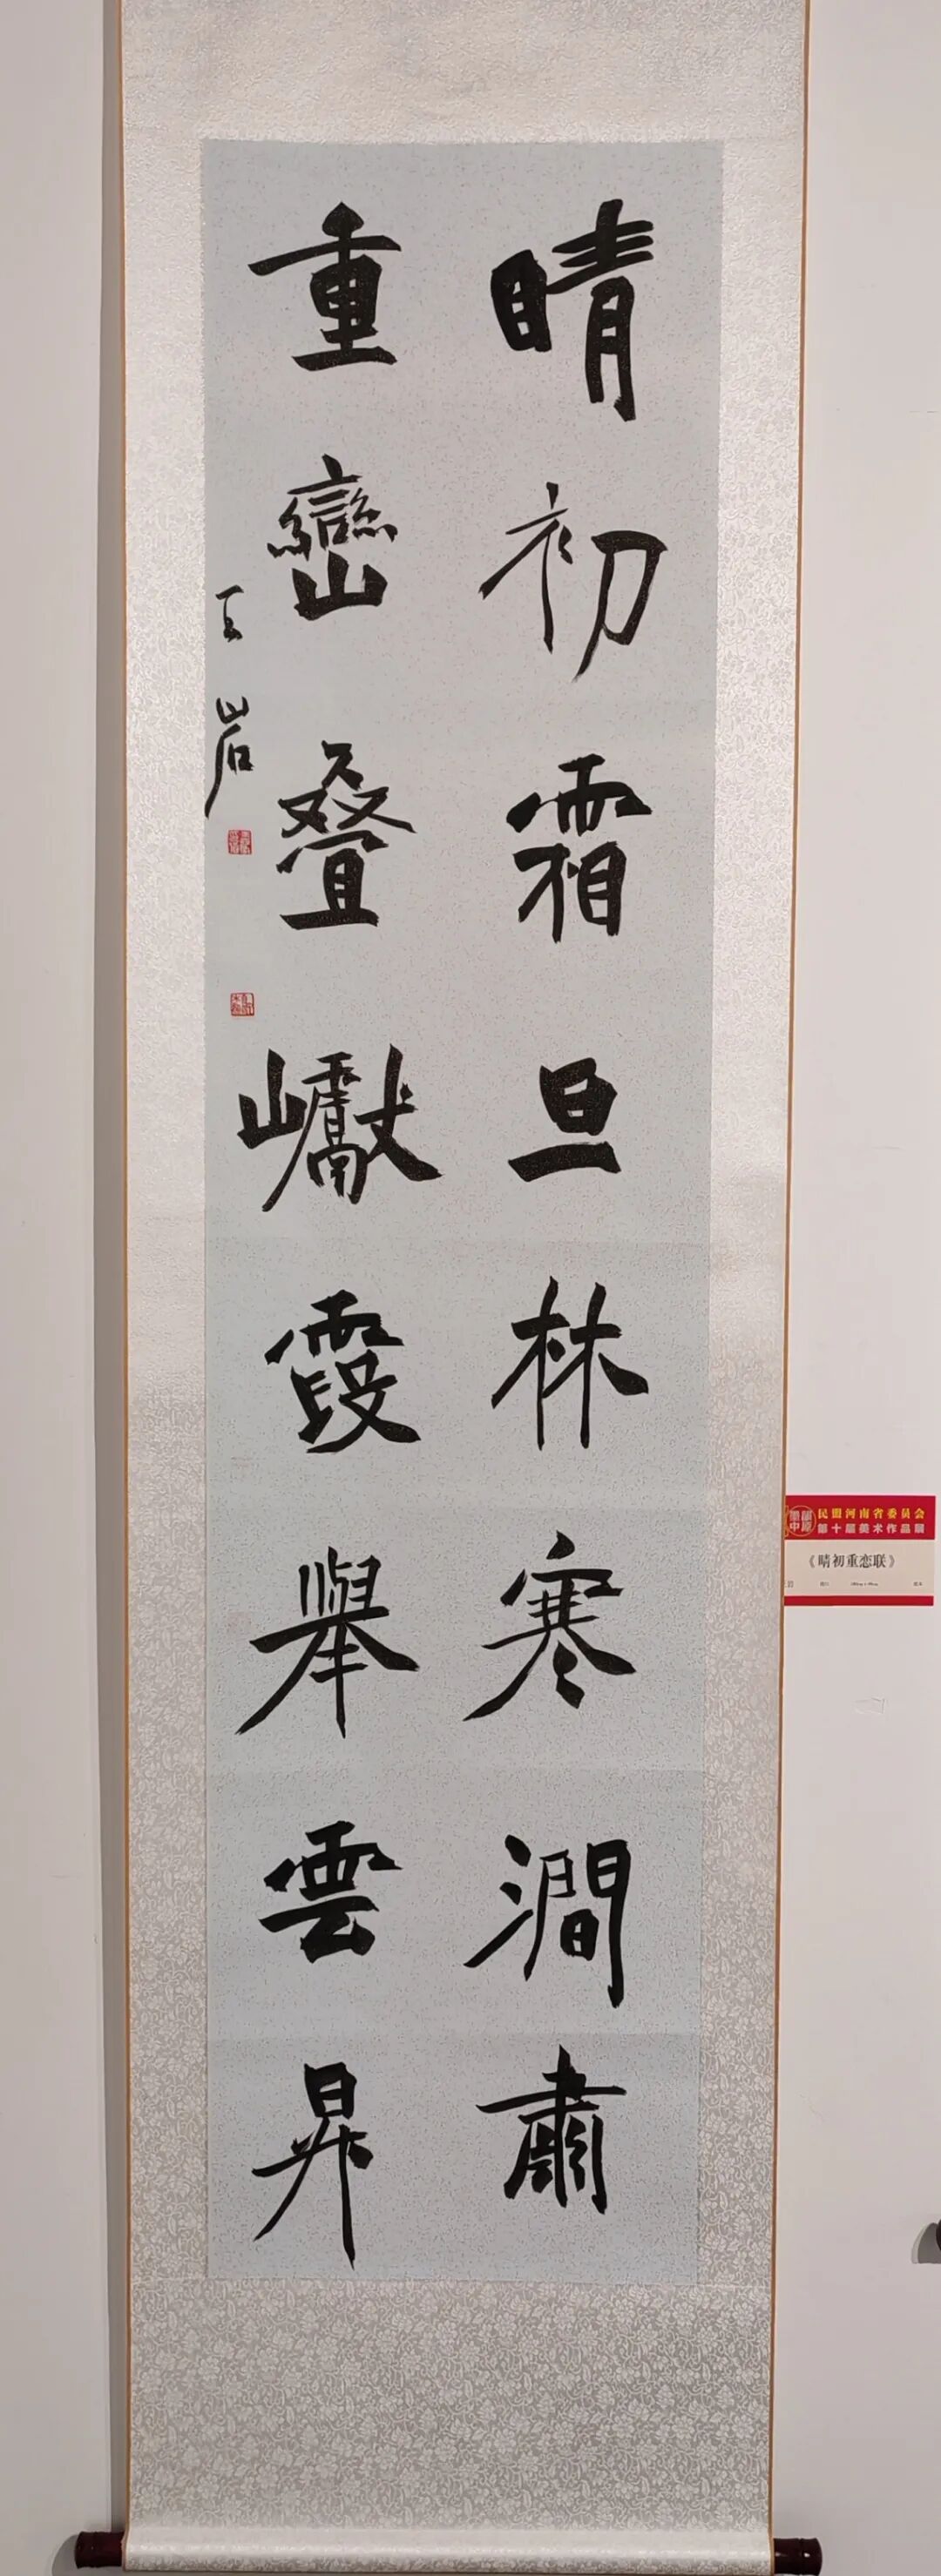 晴初霜旦林寒澗肅
重巒叠巘霞舉雲昇
王岩
民盟河南省委员会
第十届美术作品展
《晴初重恋联》